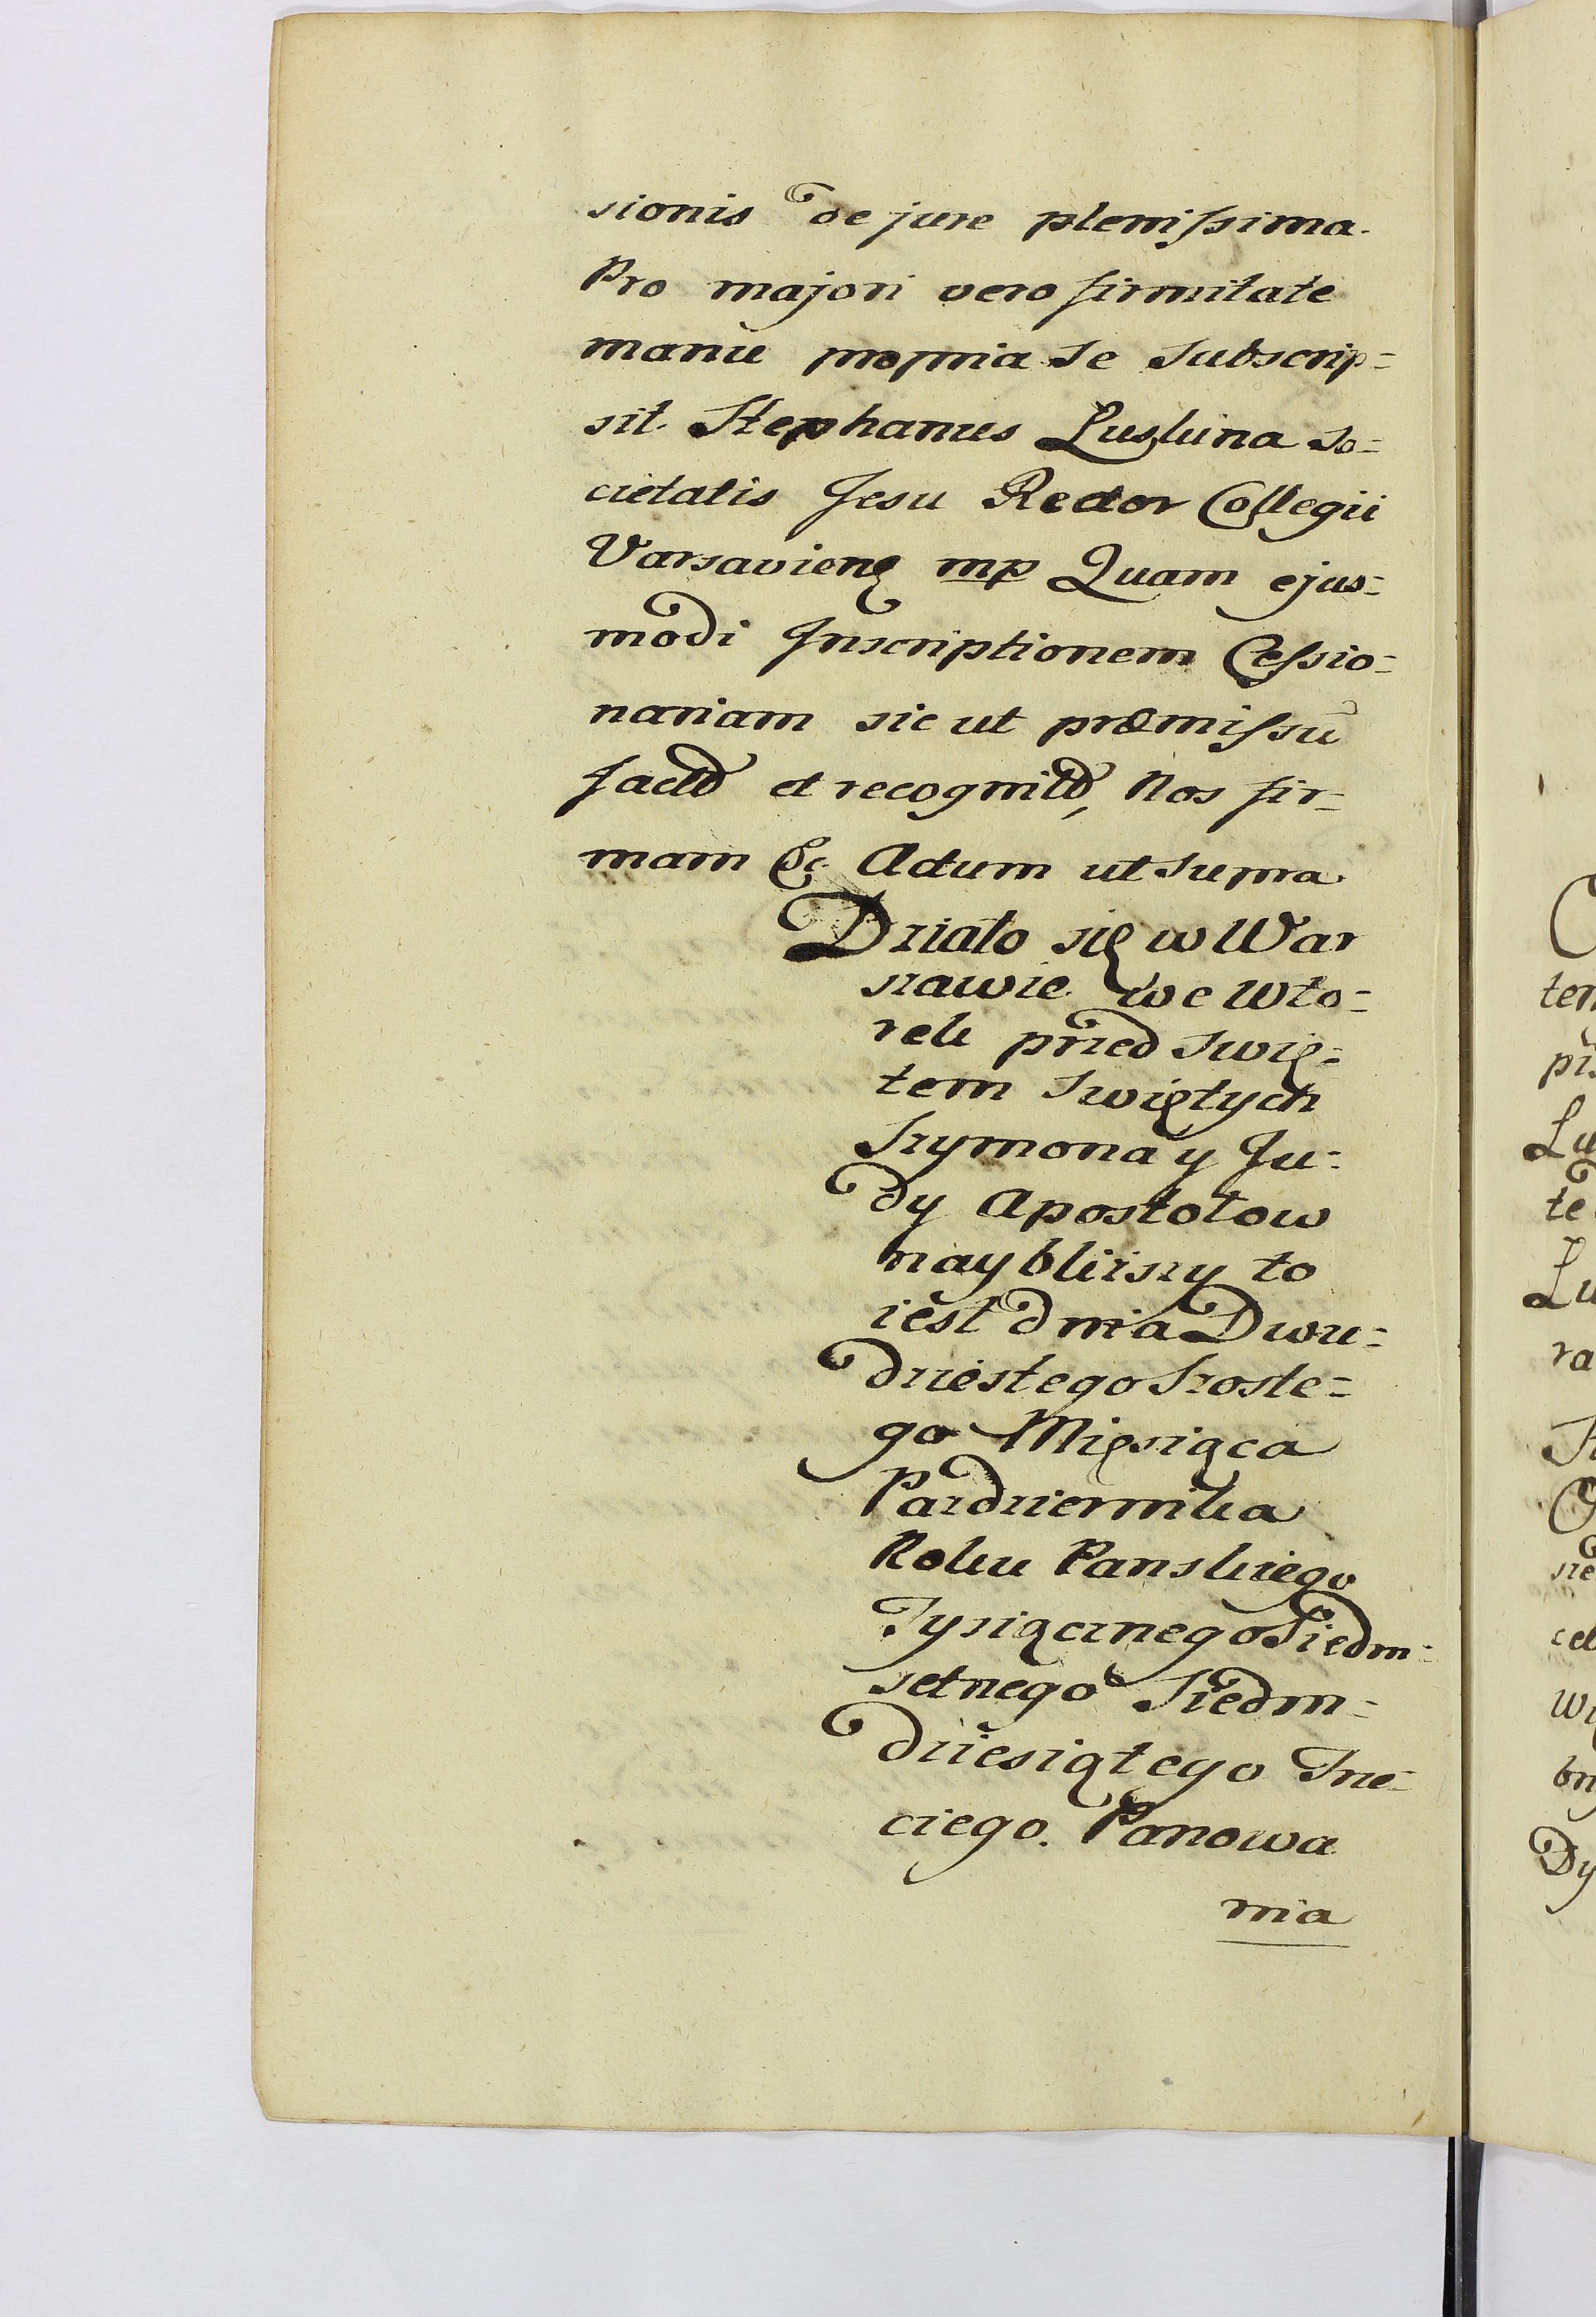 sionis de jure plenissima.
Pro majori vero firmitate
manu propria Se Subscrip=
sit. Stephanus Łuskina So=
cietatis Jesu Rector Collegii
Varsavien mp Quam ejus=
modi Inscriptionem Cessio=
nariam sic ut præmissū
factã et recognitã, Nos fir=
mam &c Actum ut Supra
Działo się w War
szawie we Wto=
rek przed Swię=
tem Swiętych
Szymona y Ju=
dy Apostołow
naybliższy to
iest dnia Dwu=
dziestego Szoste=
go Mięsiąca
Pazdziernika
Roku Panskiego
Tysiącznego Siedm=
setnego Siedm=
dziesiątego Trze=
ciego. Panowa
nia
ten
Łu
te
Łu
ra
sie
cel
Dy